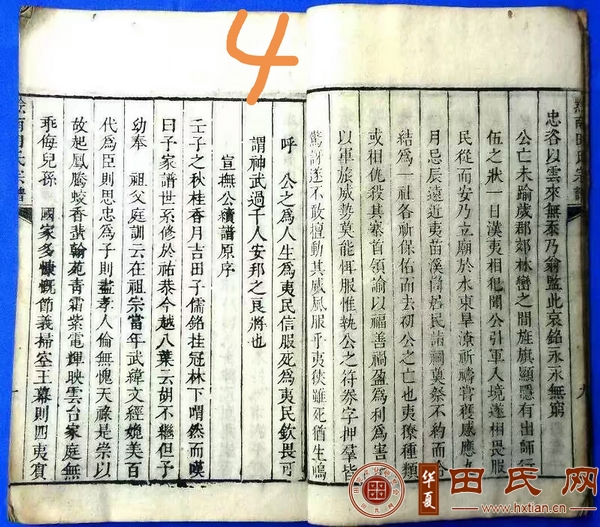 4
黔南田氏宗譜
忠谷以雲來無忝乃翁監此哀銘永永無窮
公亡未踰歲郡郊林巒之間旌旗顯隱有出師行
伍之狀一日漢夷相犯閧公引軍入境遂相畏服
民從而安乃立廟於水東旱澇祈禱嘗獲感應九
月忌辰遠近夷苗溪獠居民請祠奠祭不約而合
結爲一社各祈保佑而去初公之亡也夷獠種類
或相仇殺其寨首領諭以福善禍盈爲利爲害
以軍旅威勢莫能恇服惟執公之符劵字押羣皆
驚訝遂不敢擅動其威風服乎夷俠雖死猶生嗚
呼　公之爲人生爲夷民信服死爲夷民欽畏可
謂神武過千人安邦之良將也
宣撫公續譜原序
壬子之秋桂香月吉田子儒銘挂冠林下喟然而嘆
曰予家譜世系修於祐恭今越八葉云胡不繼但予
幼奉　祖父庭訓云在祖宗當年武緯文經媲美百
代爲臣則思忠爲子則盡孝人倫無愧天祿是崇以
故起鳳騰蛟香蜚翰苑青霜紫電輝映雲台家庭無
乖侮兒孫　國家多慷慨節義掃室王幕則四夷賓
黔南田氏宗譜
华夏田氏网
www.hxtian.cn